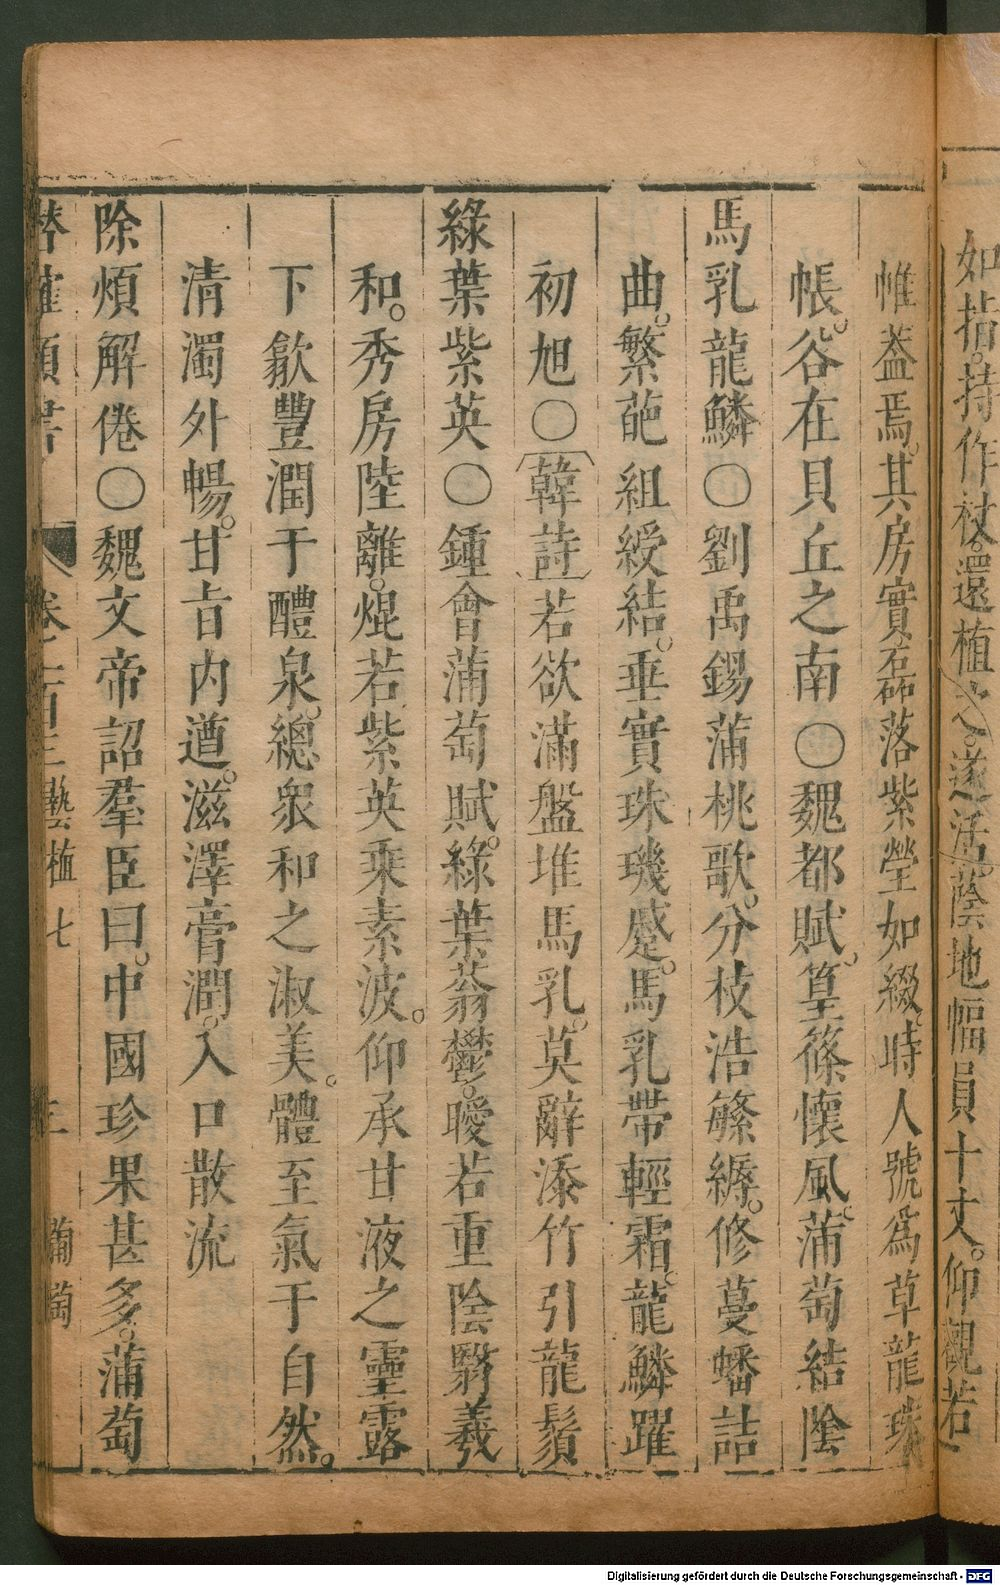 如指。持作杖。還植之。遂活。蔭地幅員十丈。仰觀若
帷蓋焉。其房實磊落紫瑩如綴。時人號爲草龍珠
帳。谷在貝丘之南〇魏都賦。篁篠懷風。蒲萄結陰
馬乳龍鱗〇劉禹錫蒲桃歌。分枝浩繁縟。修蔓蟠詰
曲。繁葩組綬結。垂實珠璣蹙。馬乳帶輕霜。龍鱗躍
初旭〇韓詩若欲滿盤堆馬乳。莫辭添竹引龍鬚
綠葉紫英〇鍾會蒲萄賦。綠葉蓊鬱。曖若重陰翳羲
和。秀房陸離。焜若紫英乘素波。仰承甘液之靈露
下歙豐潤于醴泉。總衆和之淑美。體至氣于自然。
清濁外暢。甘旨内遒。滋澤膏潤。入口散流
除煩解倦〇魏文帝詔羣臣曰。中國珍果甚多。蒲萄
類書 卷一百三 藝植七 三 葡萄
Digitalisierung gefördert durch die Deutsche Forschungsgemeinschaft - DFG